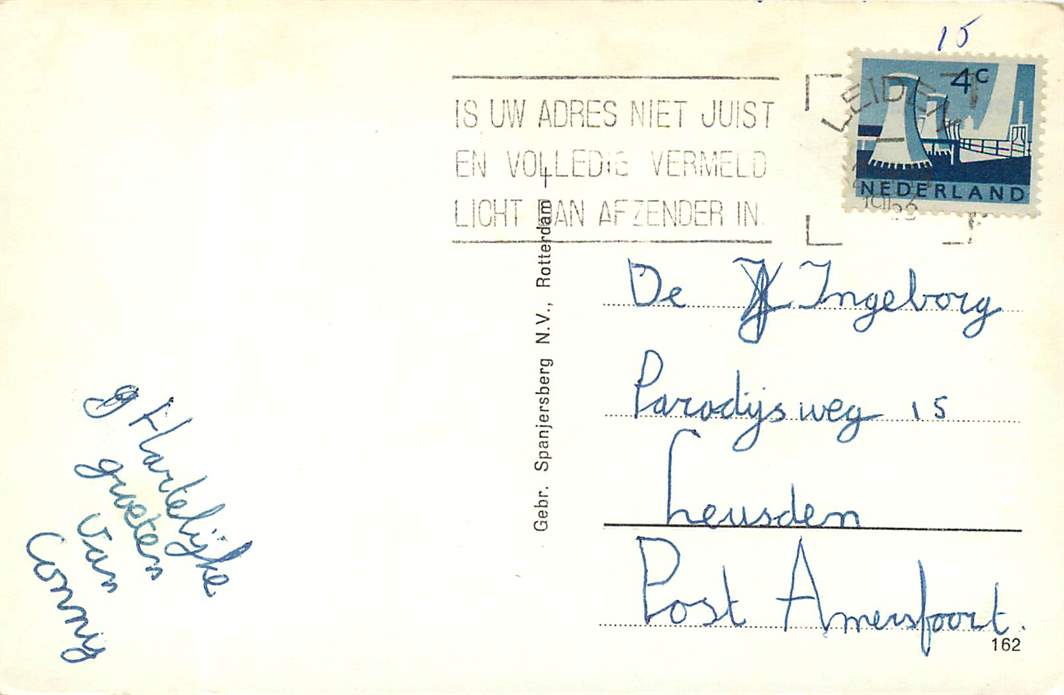 15
4c
NEDERLAND
LEIDEN
1966
IS UW ADRES NIET JUIST
EN VOLLEDIG VERMELD
LICHT DAN AFZENDER IN.
De Ingeborg
Parodijsweg 15
Leusden
Post Amersfoort.
Hartelijke
groeten
van
Conny
Gebr. Spanjersberg N.V., Rotterdam
162